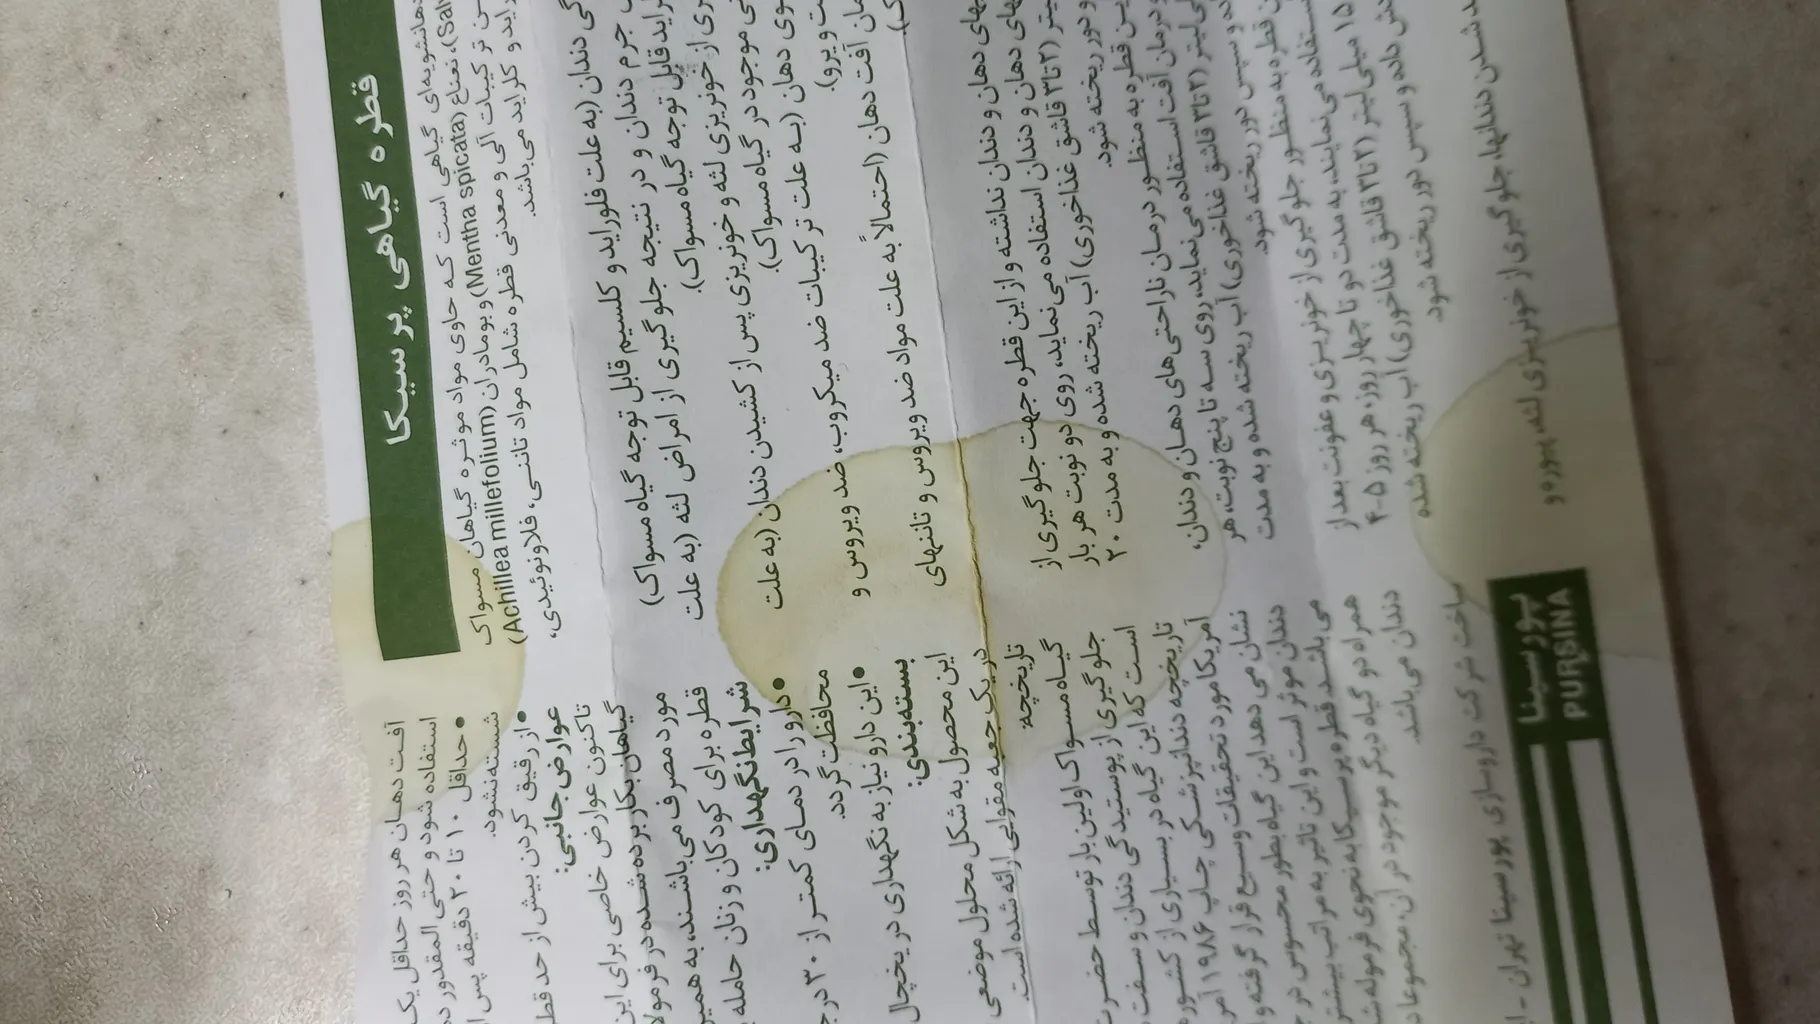 قطره گیاهی پرسیکا
دهانشویه‌ای گیاهی است که حاوی مواد موثره گیاهان مسواک
نعناع (Mentha spicata) و بومادران (Achillea millefolium)
ترکیبات آلی و معدنی قطره شامل مواد تاننی، فلاونوئیدی،
و کلراید می‌باشد.
دندان (به علت فلوراید و کلسیم قابل توجه گیاه مسواک)
جرم دندان و در نتیجه جلوگیری از امراض لثه (به علت
قابل توجه گیاه مسواک).
از خونریزی لثه و خونریزی پس از کشیدن دندان (به علت
موجود در گیاه مسواک).
دهان (به علت ترکیبات ضد میکروب، ضد ویروس و
ویرو).
آفت دهان (احتمالاً به علت مواد ضد ویروس و تاننهای
دهان و دندان نداشته و از این قطره جهت جلوگیری از
دهان و دندان استفاده می‌نماید، روی دو نوبت هر بار
(۲ تا ۳ قاشق غذاخوری) آب ریخته شده و به مدت ۲۰
و دور ریخته شود.
قطره به منظور درمان ناراحتی‌های دهان و دندان،
درمان آفت استفاده می‌نماید، روی سه تا پنج نوبت، هر
(۲ تا ۳ قاشق غذاخوری) آب ریخته شده و به مدت
و سپس دور ریخته شود.
قطره به منظور جلوگیری از خونریزی و عفونت بعد از
استفاده می‌نمایند، به مدت دو تا چهار روز، هر روز ۵-۴
۱۵ میلی‌لیتر (۲ تا ۳ قاشق غذاخوری) آب ریخته شده
داده و سپس دور ریخته شود.
شدن دندانها، جلوگیری از خونریزی لثه، پیوره و
آفت دهان هر روز حداقل یک
استفاده شود و حتی المقدور
● حداقل ۱۰ تا ۲۰ دقیقه پس
شسته نشود.
● از رقیق کردن بیش از حد
عوارض جانبی:
تاکنون عوارض خاصی برای این
گیاهان بکار برده شده در
مورد مصرف می‌باشند، به همین
قطره برای کودکان و زنان حامله
شرایط نگهداری:
● دارو را در دمای کمتر از ۳۰
محافظت گردد.
● این دارو نیاز به نگهداری در یخچال
بسته‌بندی:
این محصول به شکل محلول موضعی
در یک جعبه مقوایی ارائه شده است.
تاریخچه:
گیاه مسواک اولین بار توسط حضرت
جلوگیری از پوسیدگی دندان و سفت
است که این گیاه در بسیاری از
تاریخچه دندانپزشکی چاپ ۱۹۸۶
آمریکا مورد تحقیقات وسیع قرار گرفته و
نشان می دهد این گیاه بطور محسوس در
دندان موثر است و این تاثیر به مراتب بیشتر
می باشد. قطره پرسیکا به نحوی فرموله
همراه دو گیاه دیگر موجود در آن، مجموعا
دندان می باشد.
ساخت شرکت داروسازی پورسینا تهران -
پورسینا
PURSINA